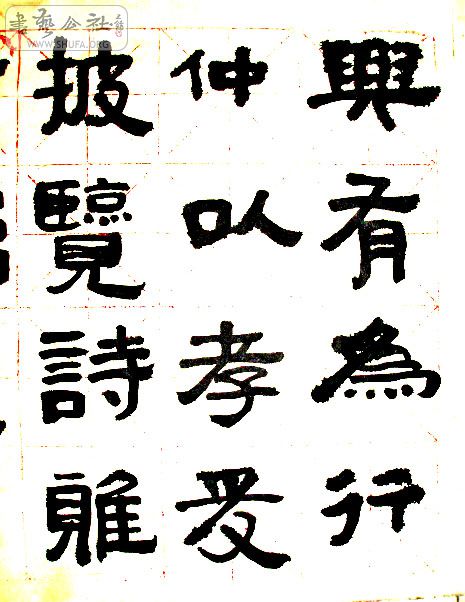 興有為行
仲以孝友
披覽詩雅
書藝公社
WWW.SHUFA.ORG